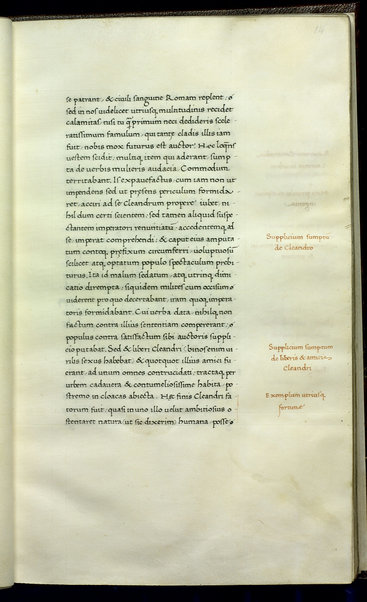 14
se patrant, & civili sanguine Romam replent, &
sed in nos videlicet utrusq; multitudinis recidet
calamitas, nisi tu q̄ primum neci dedideris scele
ratissimum famulum, qui tante cladis illis iam
fuit, nobis mox futurus est auctor. Hec loq̄ns
vestem scidit, multiq; item qui aderant, sump
ta de verbis mulieris audacia, Commodum
territabant. Is expavefactus, cum iam non ut
impendens sed ut presens periculum formida
ret, acciri ad se Cleandrum propere iubet, ni
hil dum certi scientem, sed tamen aliquid suspe
ctantem imperatori renuntiatū, accedentemq; ad
se, imperat comprehendi, & caput eius amputa
tum conteq; prefixum circumferri, voluptuosū
scilicet atq; optatum populo spectaculum prebi
turus. Ita id malum sedatum, atq; utrinq; dimi
catio dirempta, siquidem milites cum occisum
viderent pro quo decertabant, iram quoq; impera
toris formidabant. Cui verba data, nihilq; non
factum contra illius sententiam compererant,
populus contra satisfactum sibi auctoris suppli
cio putabat. Sed & liberi Cleandri (bino enim vi
ribus sexus habebat) & quotquot illius amici fu
erant, ad unum omnes contrucidati, tractaq; per
urbem cadavera & contumeliosissime habita, po
stremo in cloacas abiecta. Hic finis Cleandri fa
torum fuit, quasi in uno illo velut ambitiosius o
stentaret natura (ut sic dixerim) humana, posse
Supplicium sumptū
de Cleandro
Supplicium sumptum
de liberis & amicis
Cleandri
Exemplum utriusq;
fortune